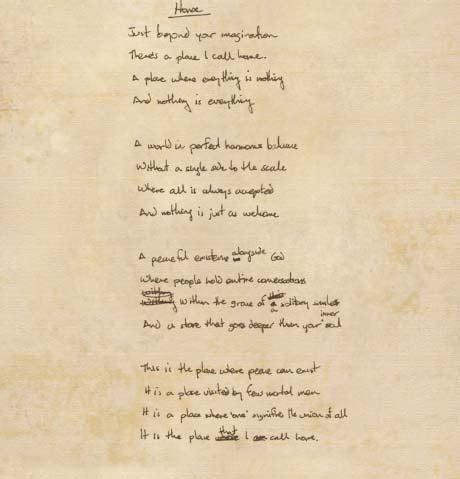 Home
Just beyond your imagination
There's a place I call home.
A place where everything is nothing
And nothing is everything
A world in perfect harmonious balance
Without a single side to the scale
Where all is always accepted
And nothing is just as welcome
A peaceful existence alongside God
Where people hold entire conversations
Within the grove of a solitary smile
And a stare that goes deeper then your inner soul
This is the place where peace can exist
It is a place visited by few mortal men
It is a place where 'one' signifies the union of all
It is the place that I call home.